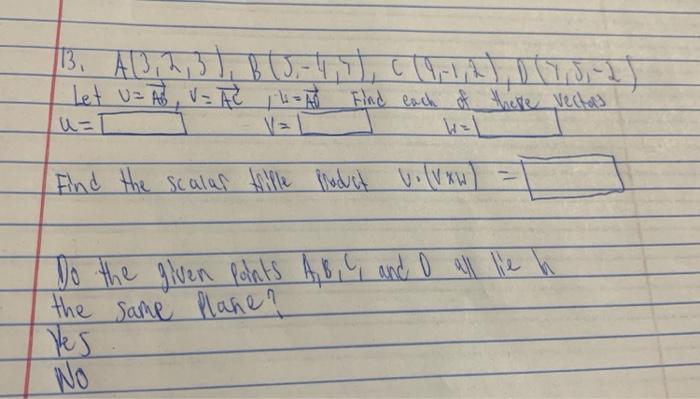 13. A(3,2,3), B(5,-4,7), C(9,-1,2), D(7,5,-2)
Let U=AB, V=AC, W=AD Find each of these vectors
u= V= W=
Find the scalar triple Product U.(V×W) =
Do the given Points A, B, C, and D all lie in
the same Plane?
Yes
No